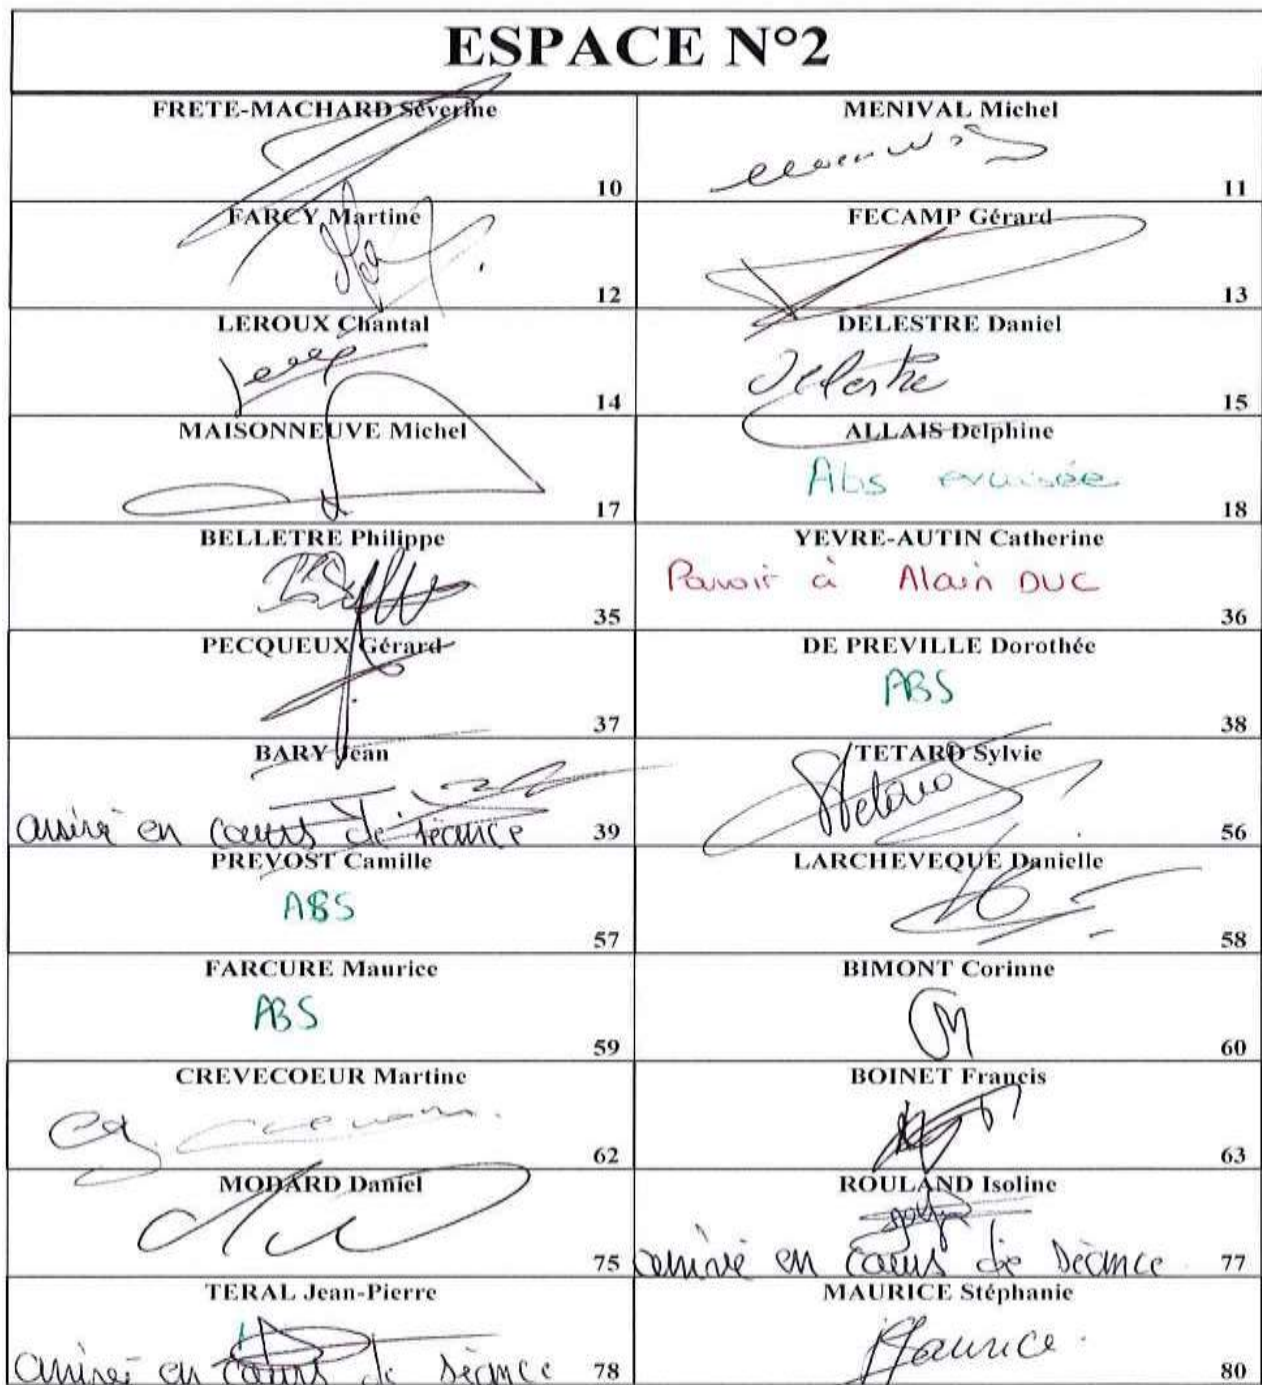 ESPACE N°2
FRETE-MACHARD Séverine
10
MENIVAL Michel
11
FARCY Martine
12
FECAMP Gérard
13
LEROUX Chantal
14
DELESTRE Daniel
Delestre
15
MAISONNEUVE Michel
17
ALLAIS Delphine
Abs excusée
18
BELLETRE Philippe
35
YEVRE-AUTIN Catherine
Pouvoir à Alain DUC
36
PECQUEUX Gérard
37
DE PREVILLE Dorothée
ABS
38
BARY Jean
arrivé en cours de séance
39
TETARD Sylvie
56
PREVOST Camille
ABS
57
LARCHEVEQUE Danielle
58
FARCURE Maurice
ABS
59
BIMONT Corinne
60
CREVECOEUR Martine
62
BOINET Francis
63
MODARD Daniel
75
ROULAND Isoline
arrivé en cours de séance
77
TERAL Jean-Pierre
arrivé en cours de séance
78
MAURICE Stéphanie
Maurice
80